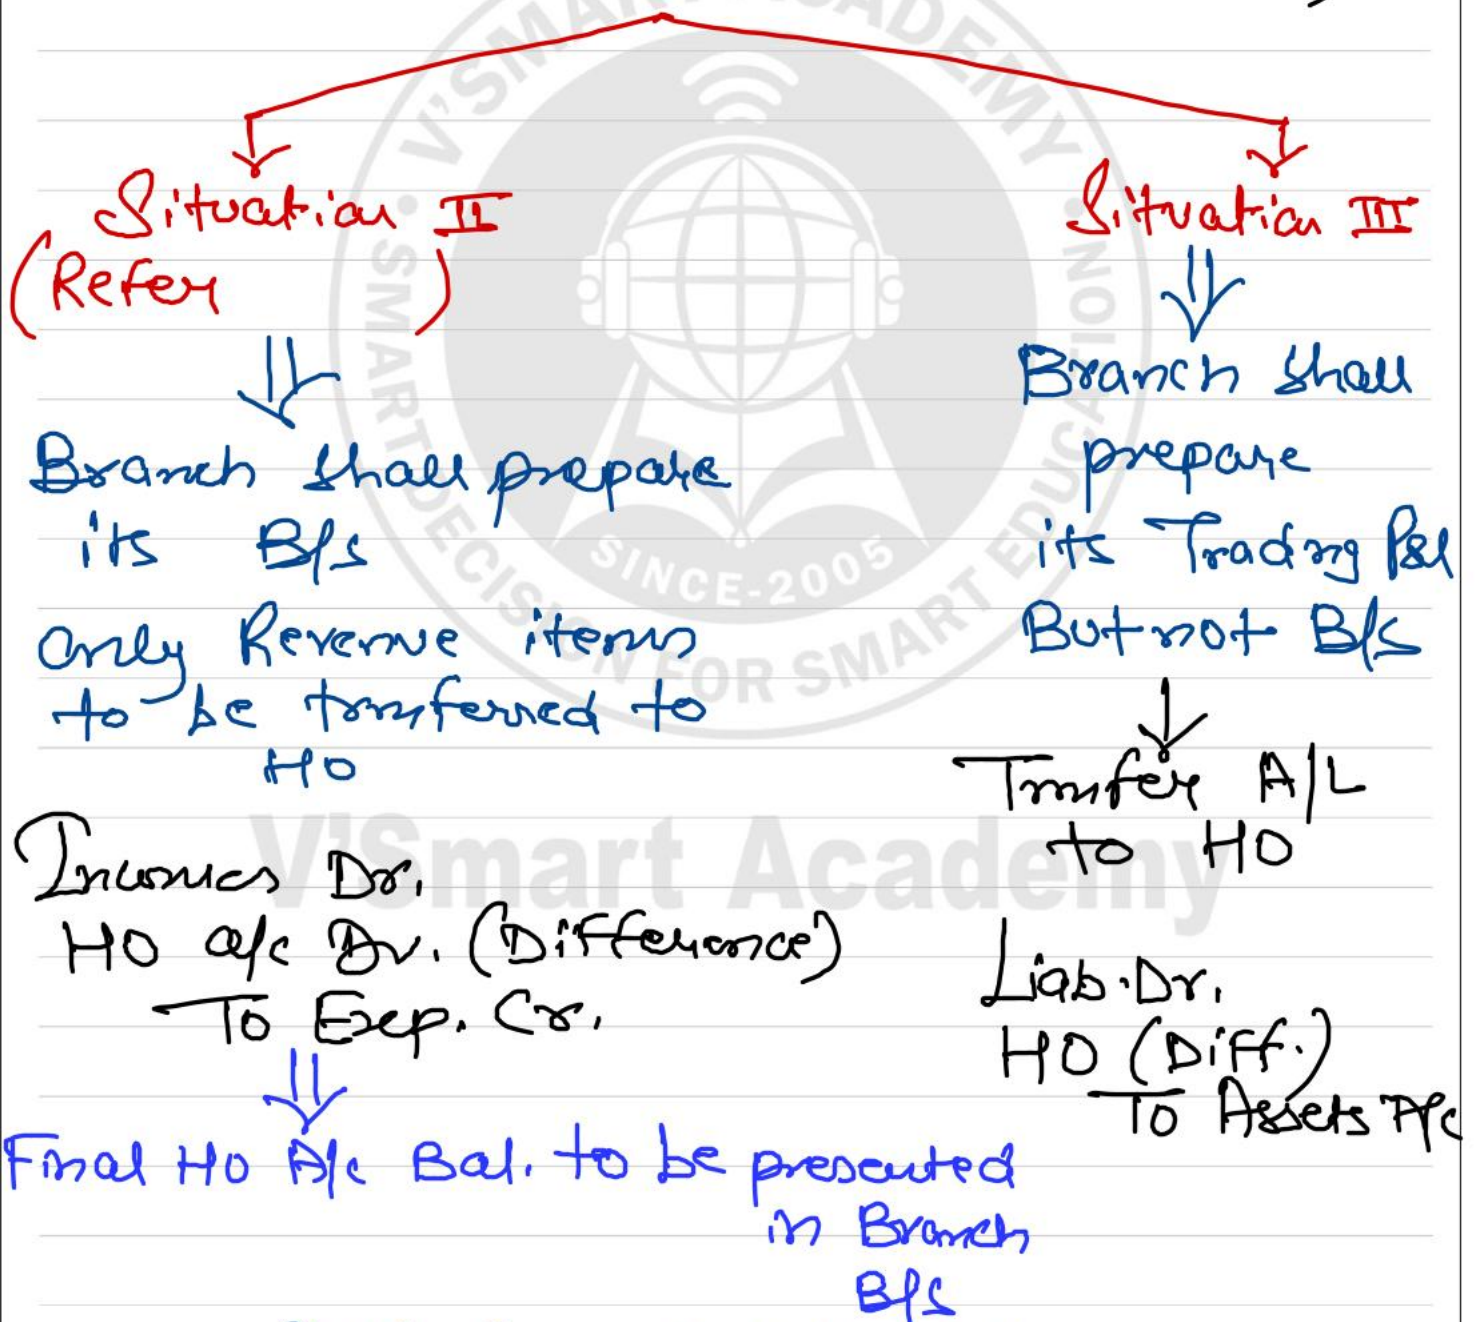 Situation II
(Refer )
Branch shall prepare
its B/s
only Revenue items
to be trnsferred to
HO
Incomes Dr.
HO a/c Dr. (Difference)
To Exp. Cr.
Final HO A/c Bal. to be presented
in Branch
B/s
Situation III
Branch shall
prepare
its Trading P&L
But not B/s
Trnsfer A/L
to HO
Liab. Dr.
HO (Diff.)
To Assets A/c
V'SMART ACADEMY
SMART DECISION FOR SMART EDUCATION
SINCE-2005
V'Smart Academy